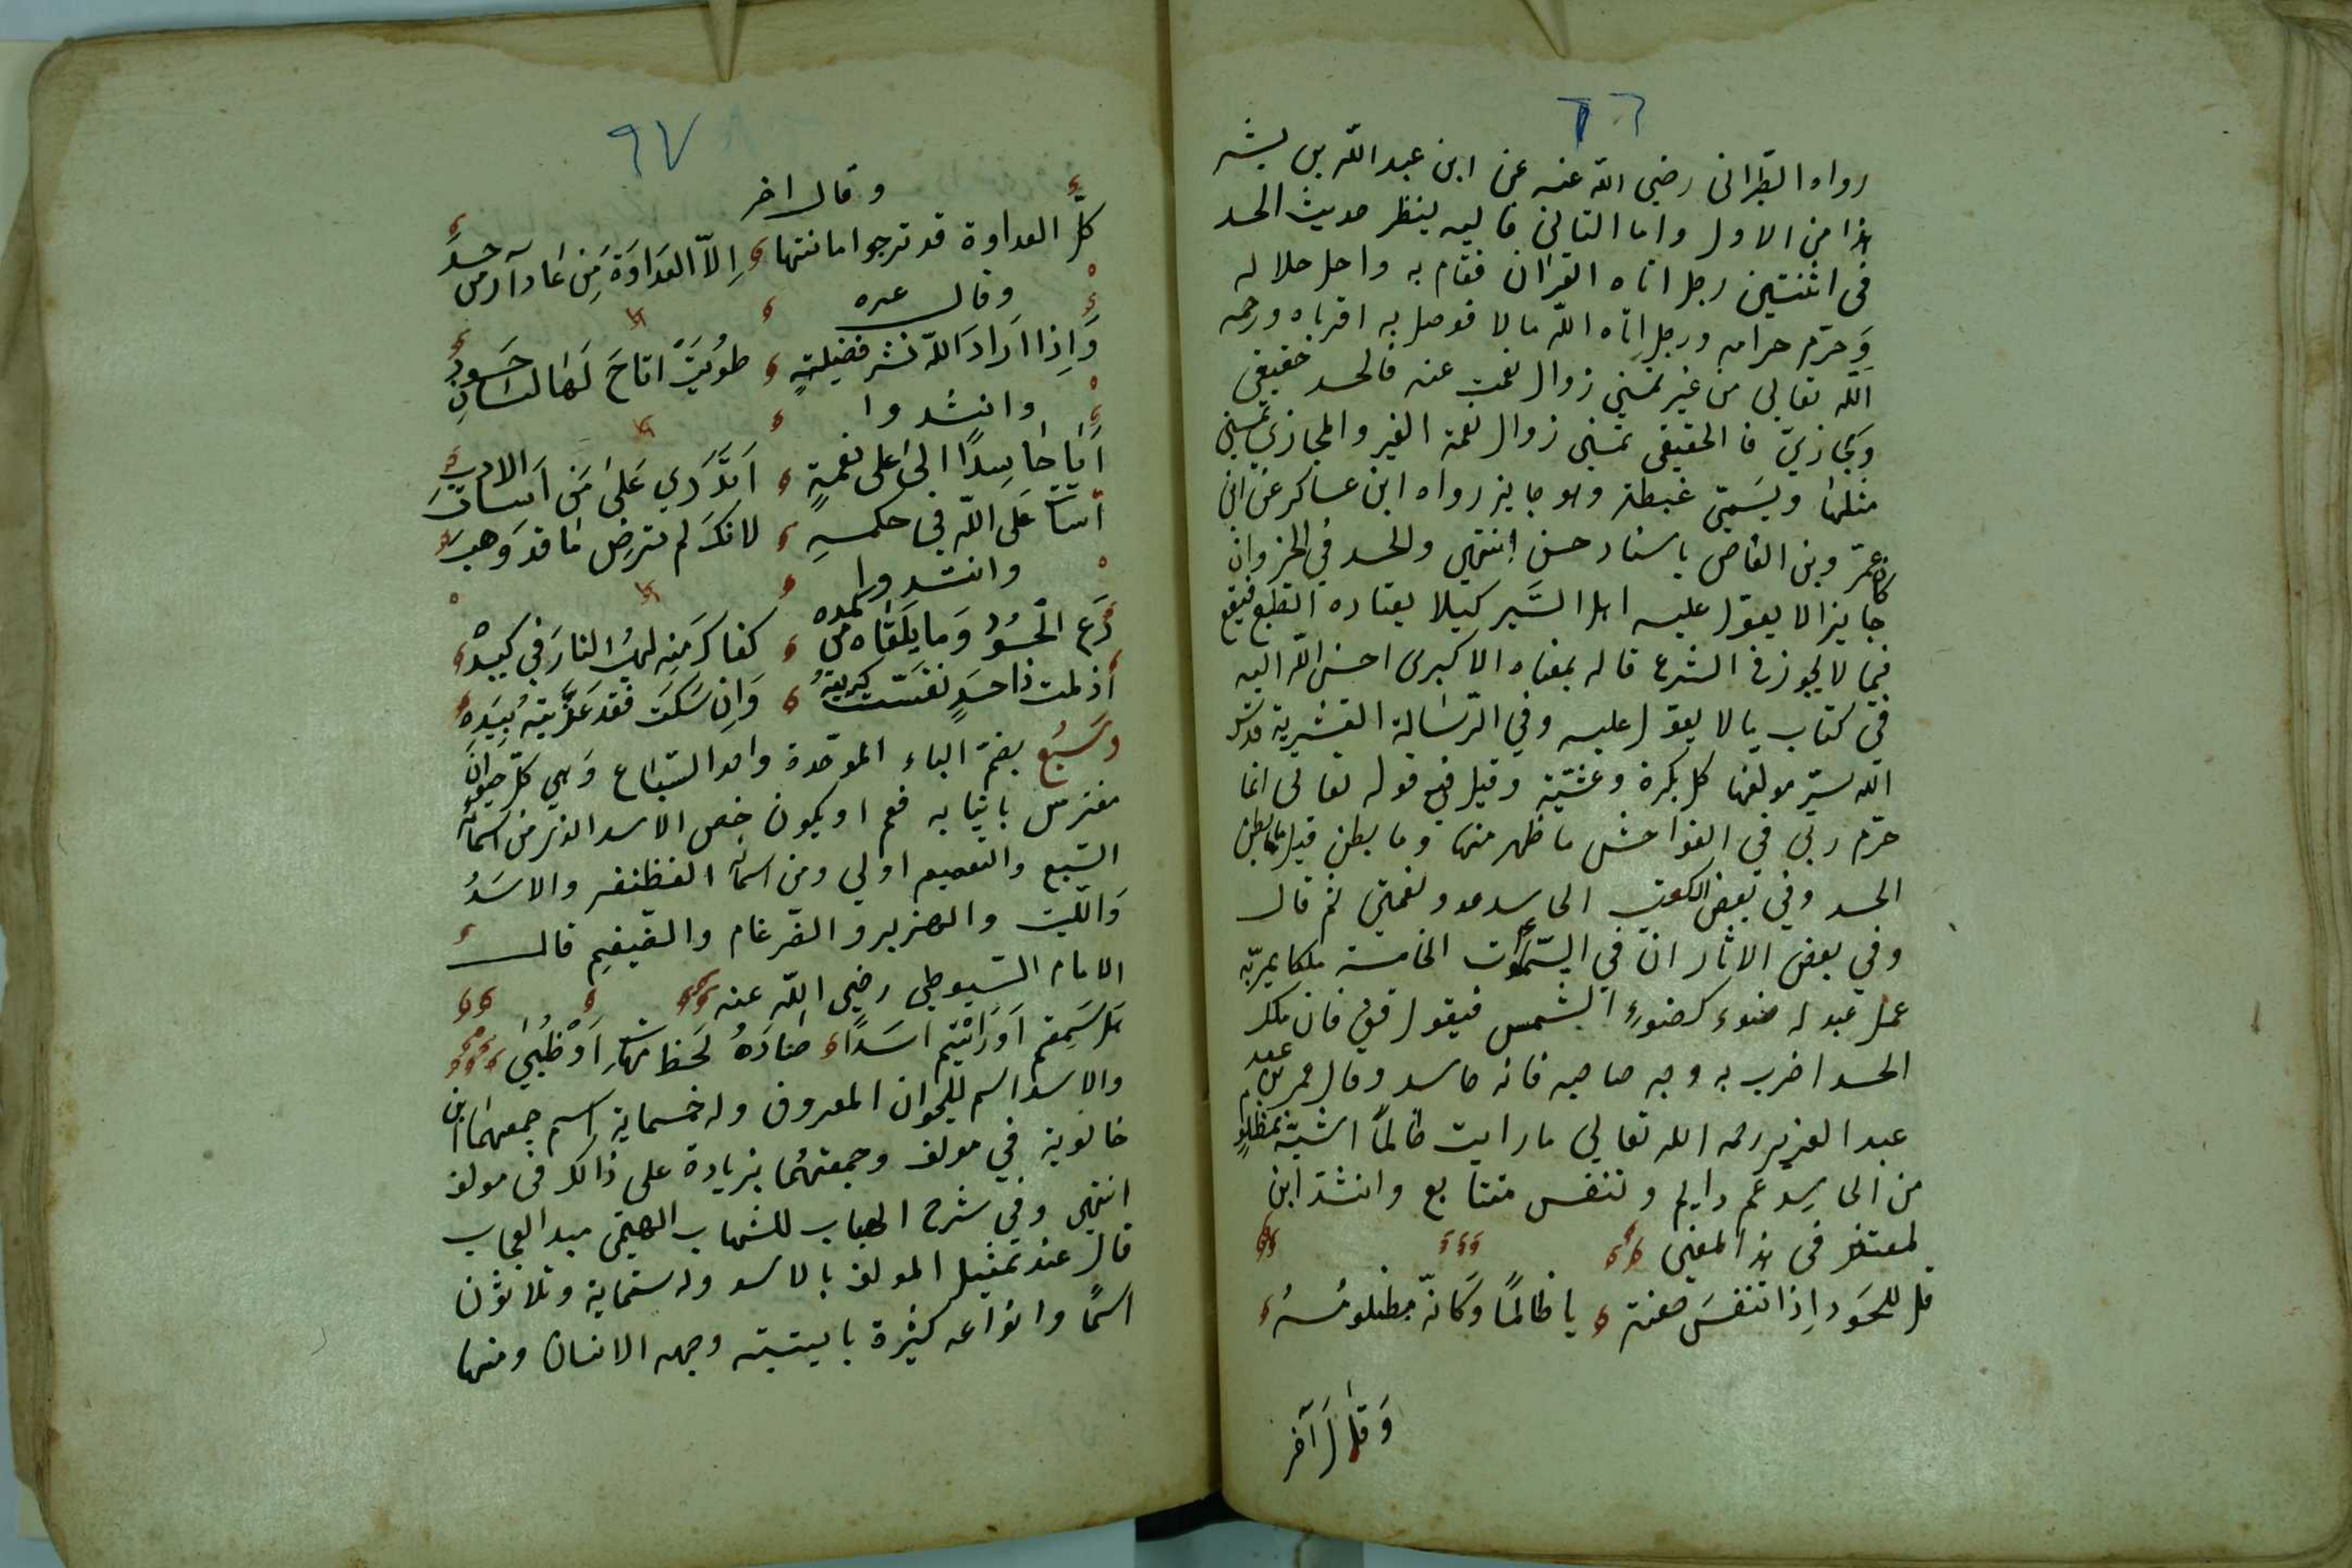 ٦٦
رواه الطبرانى رضي الله عنه عن ابن عبد الله بن بشر
هذا من الاول واما الثانى فاليه ينظر حديث الحسد
فى اثنتين رجل اتاه القران فقام به واحل حلاله
وَحرّم حرامه ورجل اتاه الله مالا فوصل به اقرباه ورحمه
الله تعالى من غير تمنيّ زوال نعمت عنه فالحسد حقيقى
ومجازيّ فالحقيقى تمنى زوال نعمة الغير والمجازى تمنى
مثلها ويسَمىّ غبطة وهو جايز رواه ابن عساكر عن ابى
عمر وبن القاص باسناد حسن انتهى والحسد في الخير وان كان
جايزا لا يعوّل عليه اهل السَّير كيلا يعتاده الطبع فيقع
فيما لا يجوز فى الشرع قاله بمعناه الاكبرى احسن الله اليه
في كتاب ما لا يعوّل عليه وفي الرّسَالة القشيرية قدس
الله سرّ مولفها كل بكرة وعشيّة وقيل في قوله تعالى انما
حرّم ربى في الفواحش ما ظهر منها وما بطن قيل ما بطن
الحسد وفي بعض الكتب الحاسد عدو نعمتى ثم قال
وفي بعض الاثار ان في السّموٰت الخامسة ملكا يمرّ به
عمل عبد له ضوء كضوءِ الشمس فيقول قف فان ملك
الحسد اضرب به وجه صاحبه فانه حاسد وقال عمر بن
عبد العزيز رحمه الله تعالى ما رايت ظالماً اشبَه بمظلومٍ
من الحاسِد غم دايم وتنفس متتابع وانشد ابن
لمعتز فى هذ المعنى
قل للحَسود اِذا تنفسَ ضغنة يا ظالماً وَكانّه مظلومُ
وَقالَ آخر
٦٧
وقال اخر
كلّ العداوة قد ترجوا امانتها اِلاّ العَدَاوَة مَن عَاداكَ من حسدً
وقال غيره
وَاِذا ارَادَ اللّه نشر فضيلةٍ طوُيَتْ اتاحَ لَهَا لسَانِ حَسودِ
وانشدوا
اَيَا حَاسِدًا لىٰ على نعمةٍ اَتدَّرِي عَلىٰ مَن اَسَاتَ الادبِ
اَسَاتَ عَلى اللّه في حكمهِ لانكَ لم ترض مَا قد وَهبَ
وانشدوا
دَعِ الحسُودَ وَما يلقَاه من كمده كفاكَ مَنه لهيبُ النارَ في كبدْه
اِن لمت ذا حسَدٍ نفسّت كربته وَان سَكت فقد عَذَّبته بيَدِه
وسَبُع بضم الباء الموحّدة واحد السّباع وَهي كلّ حيوان
مفترس بانيابه فعم او يكون خص الاسد الذى من اسمائه
السّبع والتعميم اولي ومن اسمائه الغظنفر والاسَدُ
وَاللّيث والهزبر والضّرغام والضّيغم قال
الامام السّيوطي رضي اللّه عنه
هَل سَمِعْتم اَوَ رَاَيْتُم اسَداً صَادَهُ لحَظ اَوْ ظُبَيٰ
والاسد اسم للحيوان المعروف وله خمسماية اسم جمعهما ابن
خالوية في مولف وجمعتهُما بزيادة على ذالك فى مولف
انتهى وفي شرح العباب للشهاب الهيتمى
قال عند تمثيل المولف بالاسد وله ستماية وثلاثون
اسمًا وانواعه كثيرة وجهه الانسان ومنها